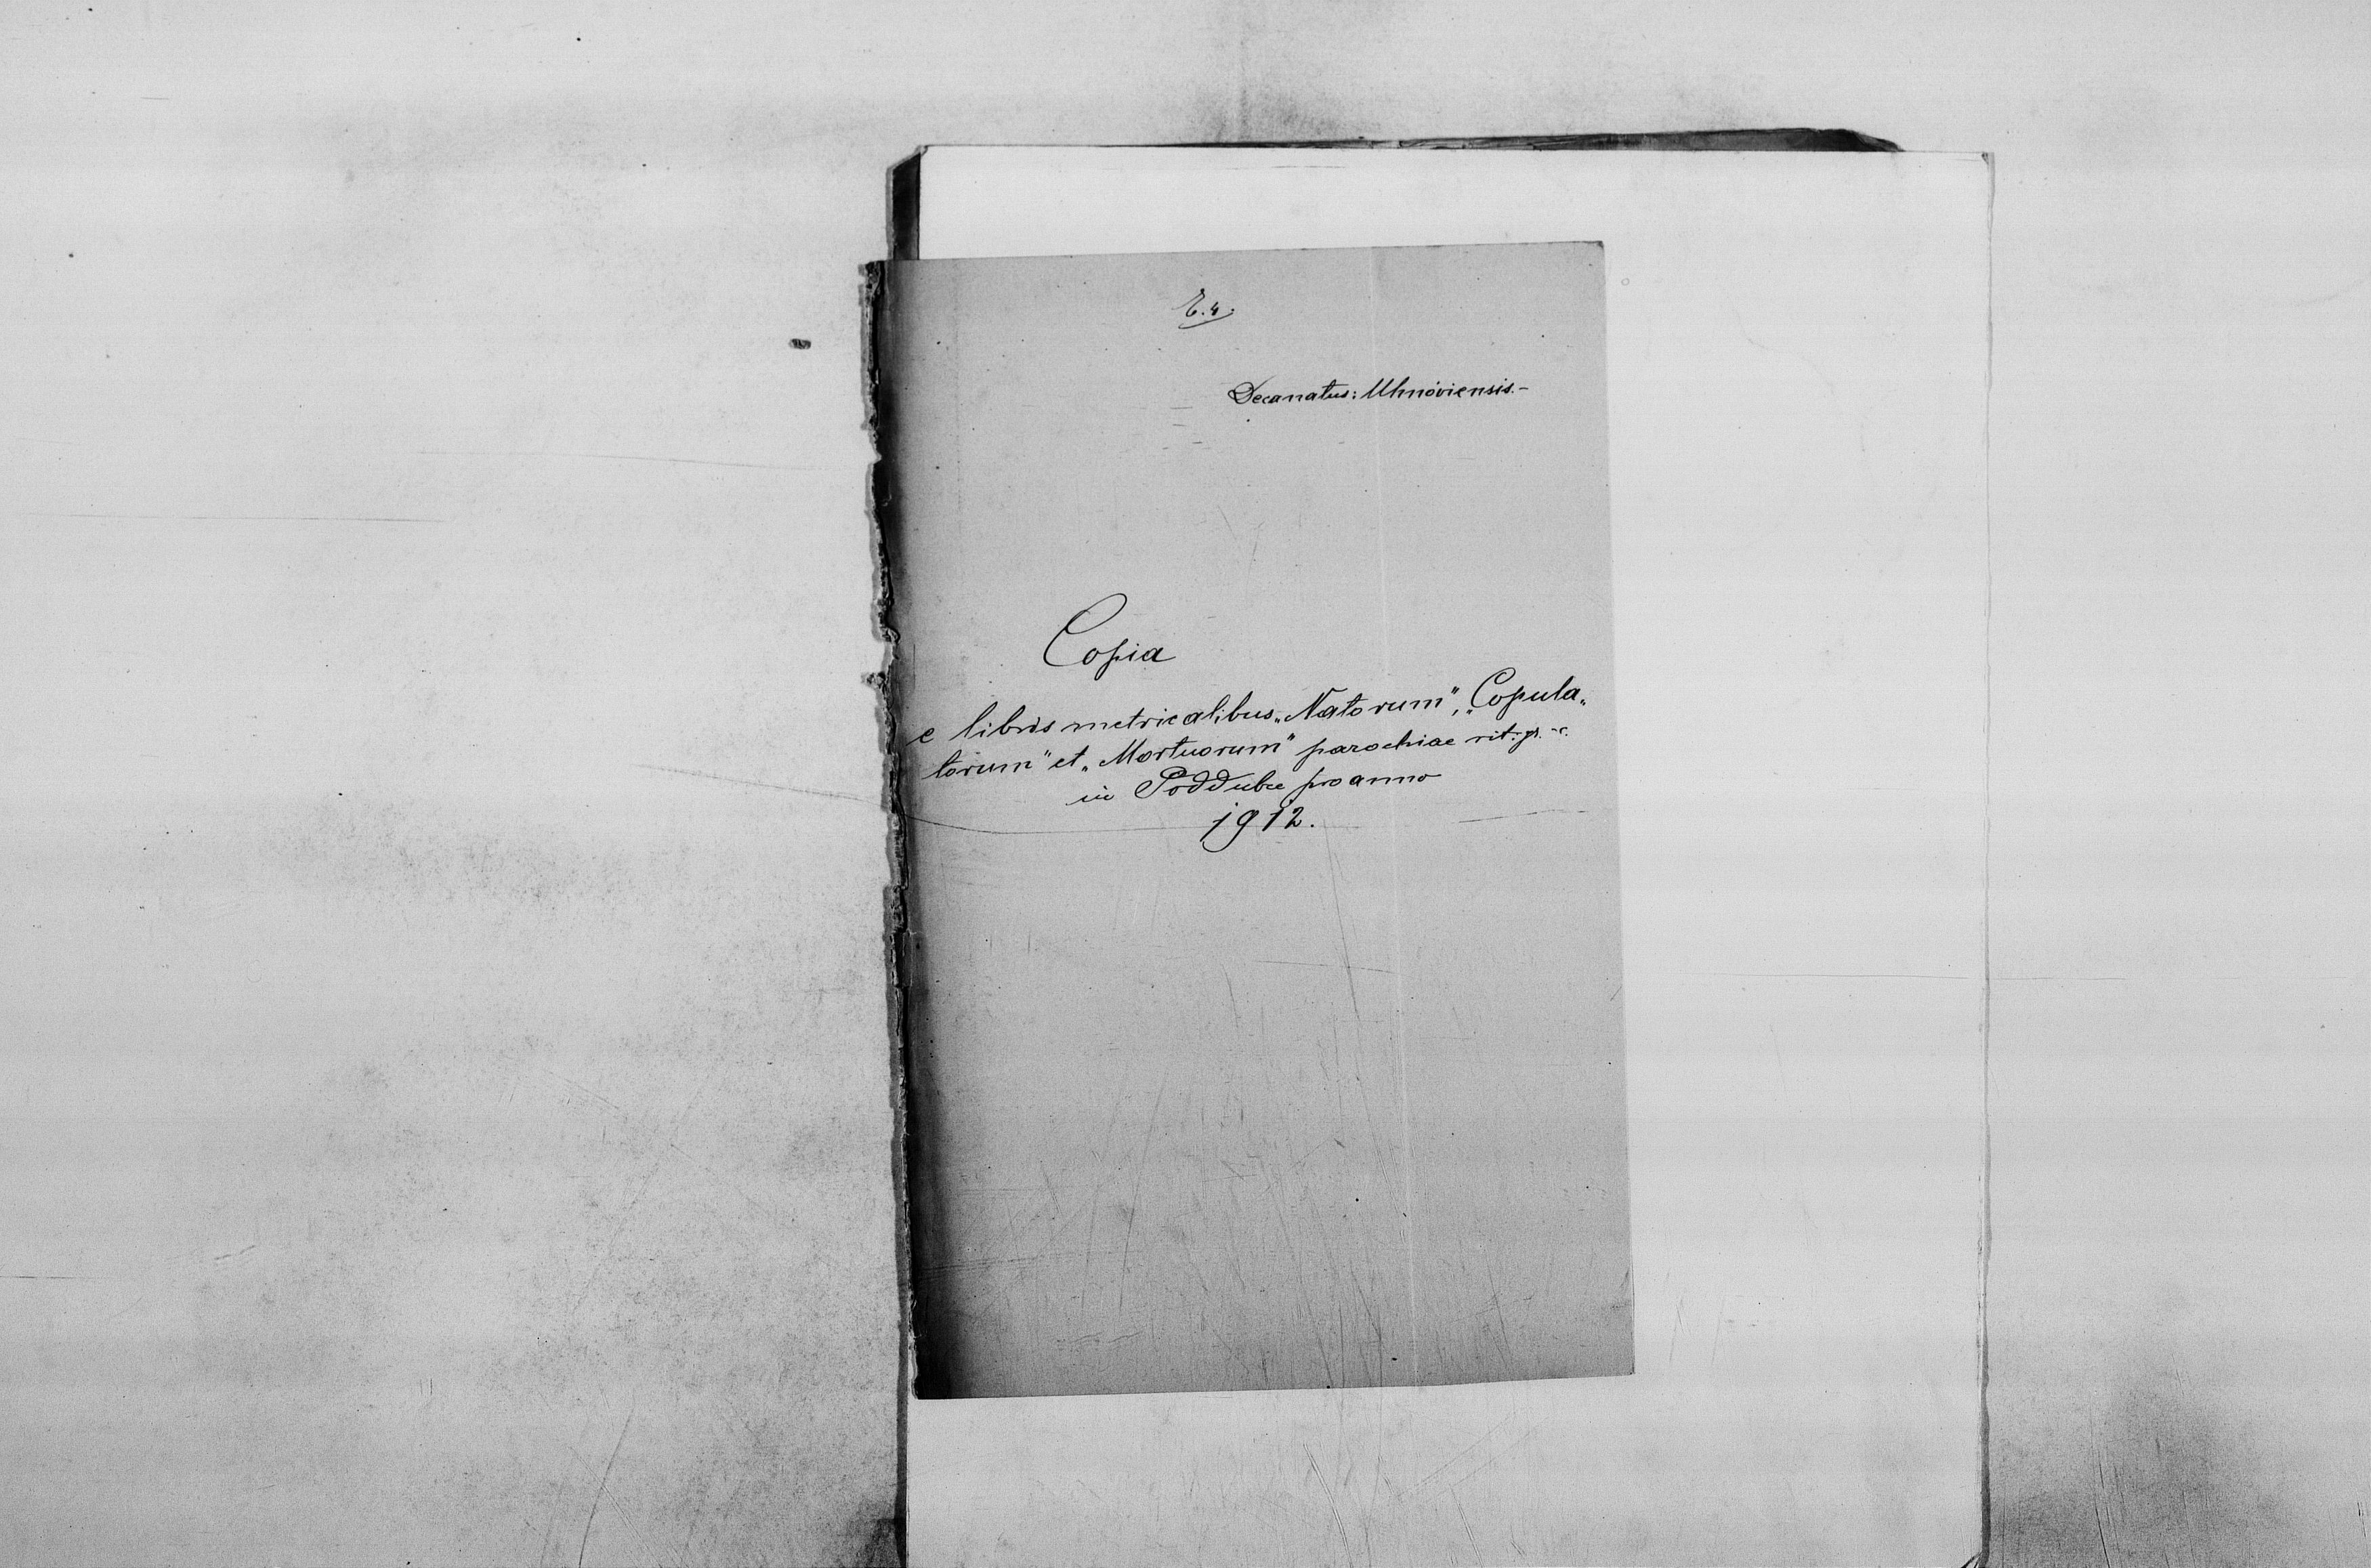 E. 4.
Decanatus: Uhnóviensis.-
Copia
e libris metricalibus „Natorum", „Copula„
torum" et „Mortuorum" parochiae rit. gr. -c.
in Poddubce pro anno
1912.